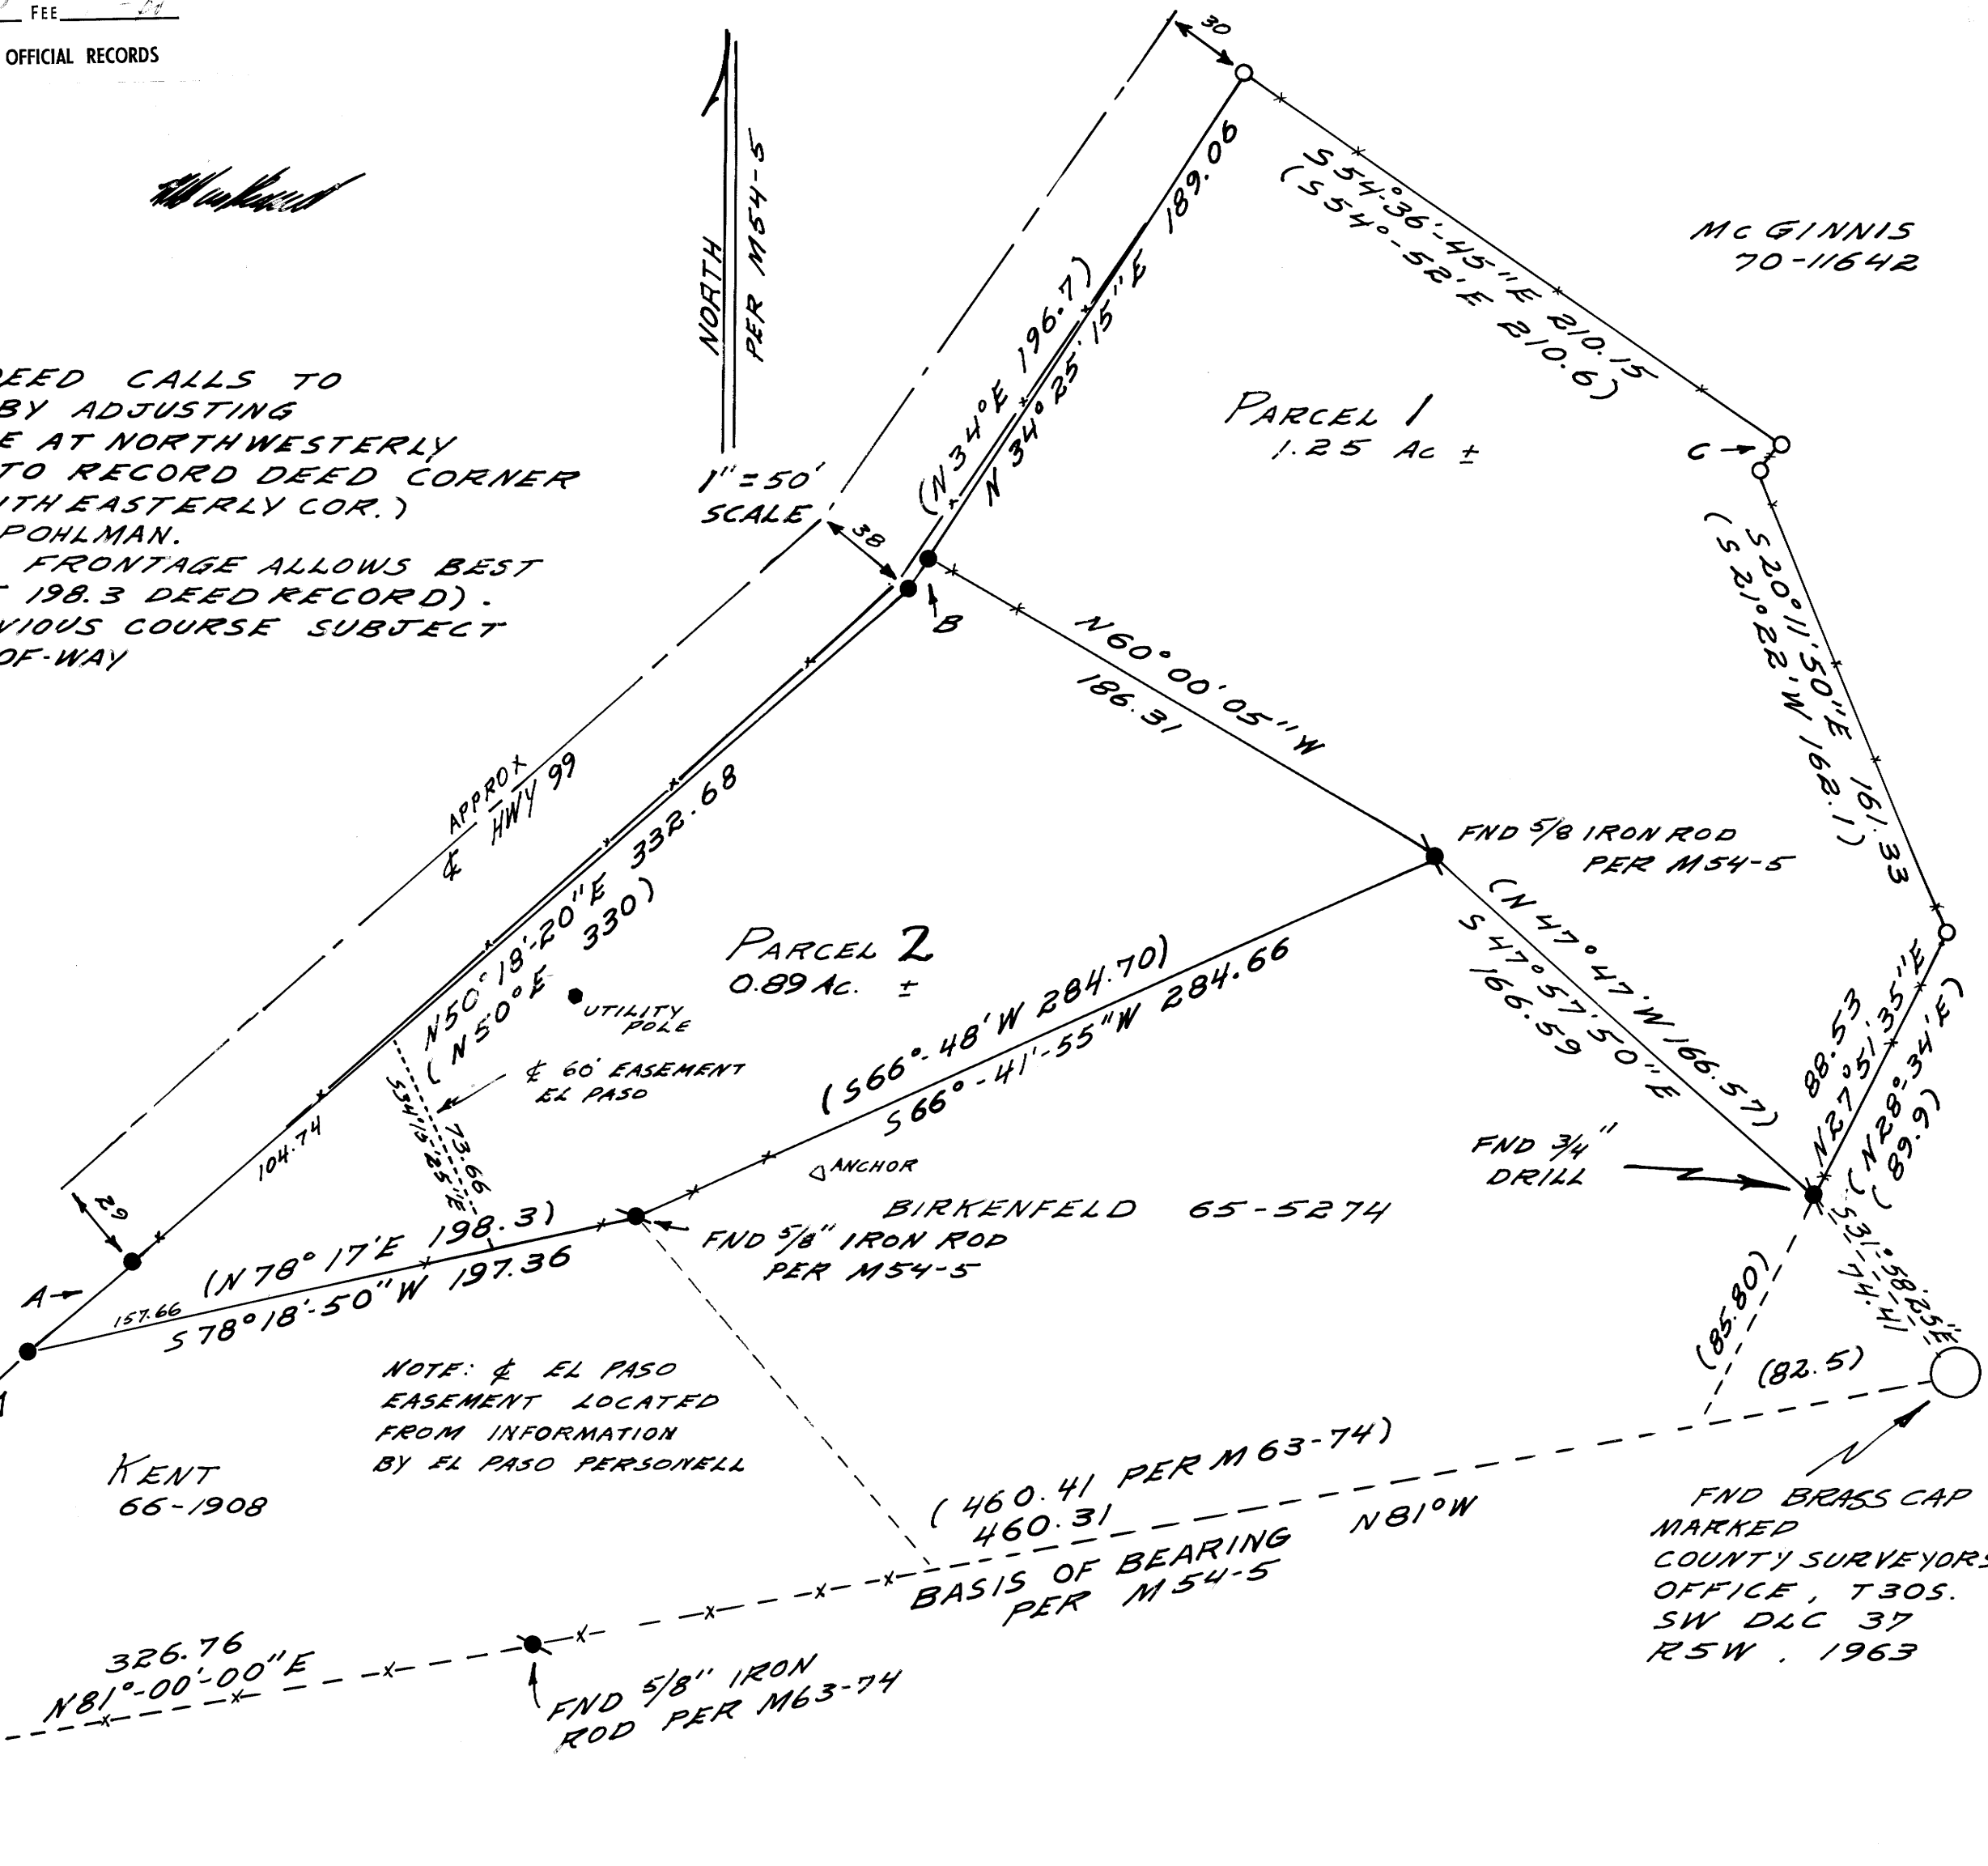 FEE
OFFICIAL RECORDS
30
NORTH
PER M54-5
1"=50'
SCALE
S 54°-36'-45"E 210.15
(S 54°-52'E 210.6)
MC GINNIS
70-11642
EED CALLS TO
BY ADJUSTING
E AT NORTHWESTERLY
TO RECORD DEED CORNER
TH EASTERLY COR.)
POHLMAN.
FRONTAGE ALLOWS BEST
198.3 DEED RECORD).
VIOUS COURSE SUBJECT
OF-WAY
(N 34°E 196.7)
N 34°25'15"E 189.06
PARCEL 1
1.25 AC ±
C
38
B
N60°00'05"W
186.31
S20°11'50"E 161.33
(S 21°22'W 162.1)
APPROX
℄ HWY 99
N50°18'-20"E 332.68
(N 50°E 330)
FND 5/8 IRON ROD
PER M54-5
PARCEL 2
0.89 AC. ±
UTILITY
POLE
℄ 60' EASEMENT
EL PASO
(S66°-48'W 284.70)
S66°-41'-55"W 284.66
(N 47°47'W 166.57)
S 47°57'50"E
166.59
88.53
N27°51'35"E
(N28°-34'E)
(89.9)
FND 3/4"
DRILL
104.74
73.66
S34°13'25"E
ANCHOR
BIRKENFELD 65-5274
29
A
(N78°17'E 198.3)
157.66
S78°18'-50"W 197.36
FND 5/8" IRON ROD
PER M54-5
S31°58'25"E
74.41
(85.80)
(82.5)
NOTE: ℄ EL PASO
EASEMENT LOCATED
FROM INFORMATION
BY EL PASO PERSONELL
KENT
66-1908
(460.41 PER M63-74)
460.31
BASIS OF BEARING N81°W
PER M54-5
FND BRASS CAP
MARKED
COUNTY SURVEYORS
OFFICE, T30S.
SW DLC 37
R5W. 1963
326.76
N81°-00'-00"E
FND 5/8" IRON
ROD PER M63-74